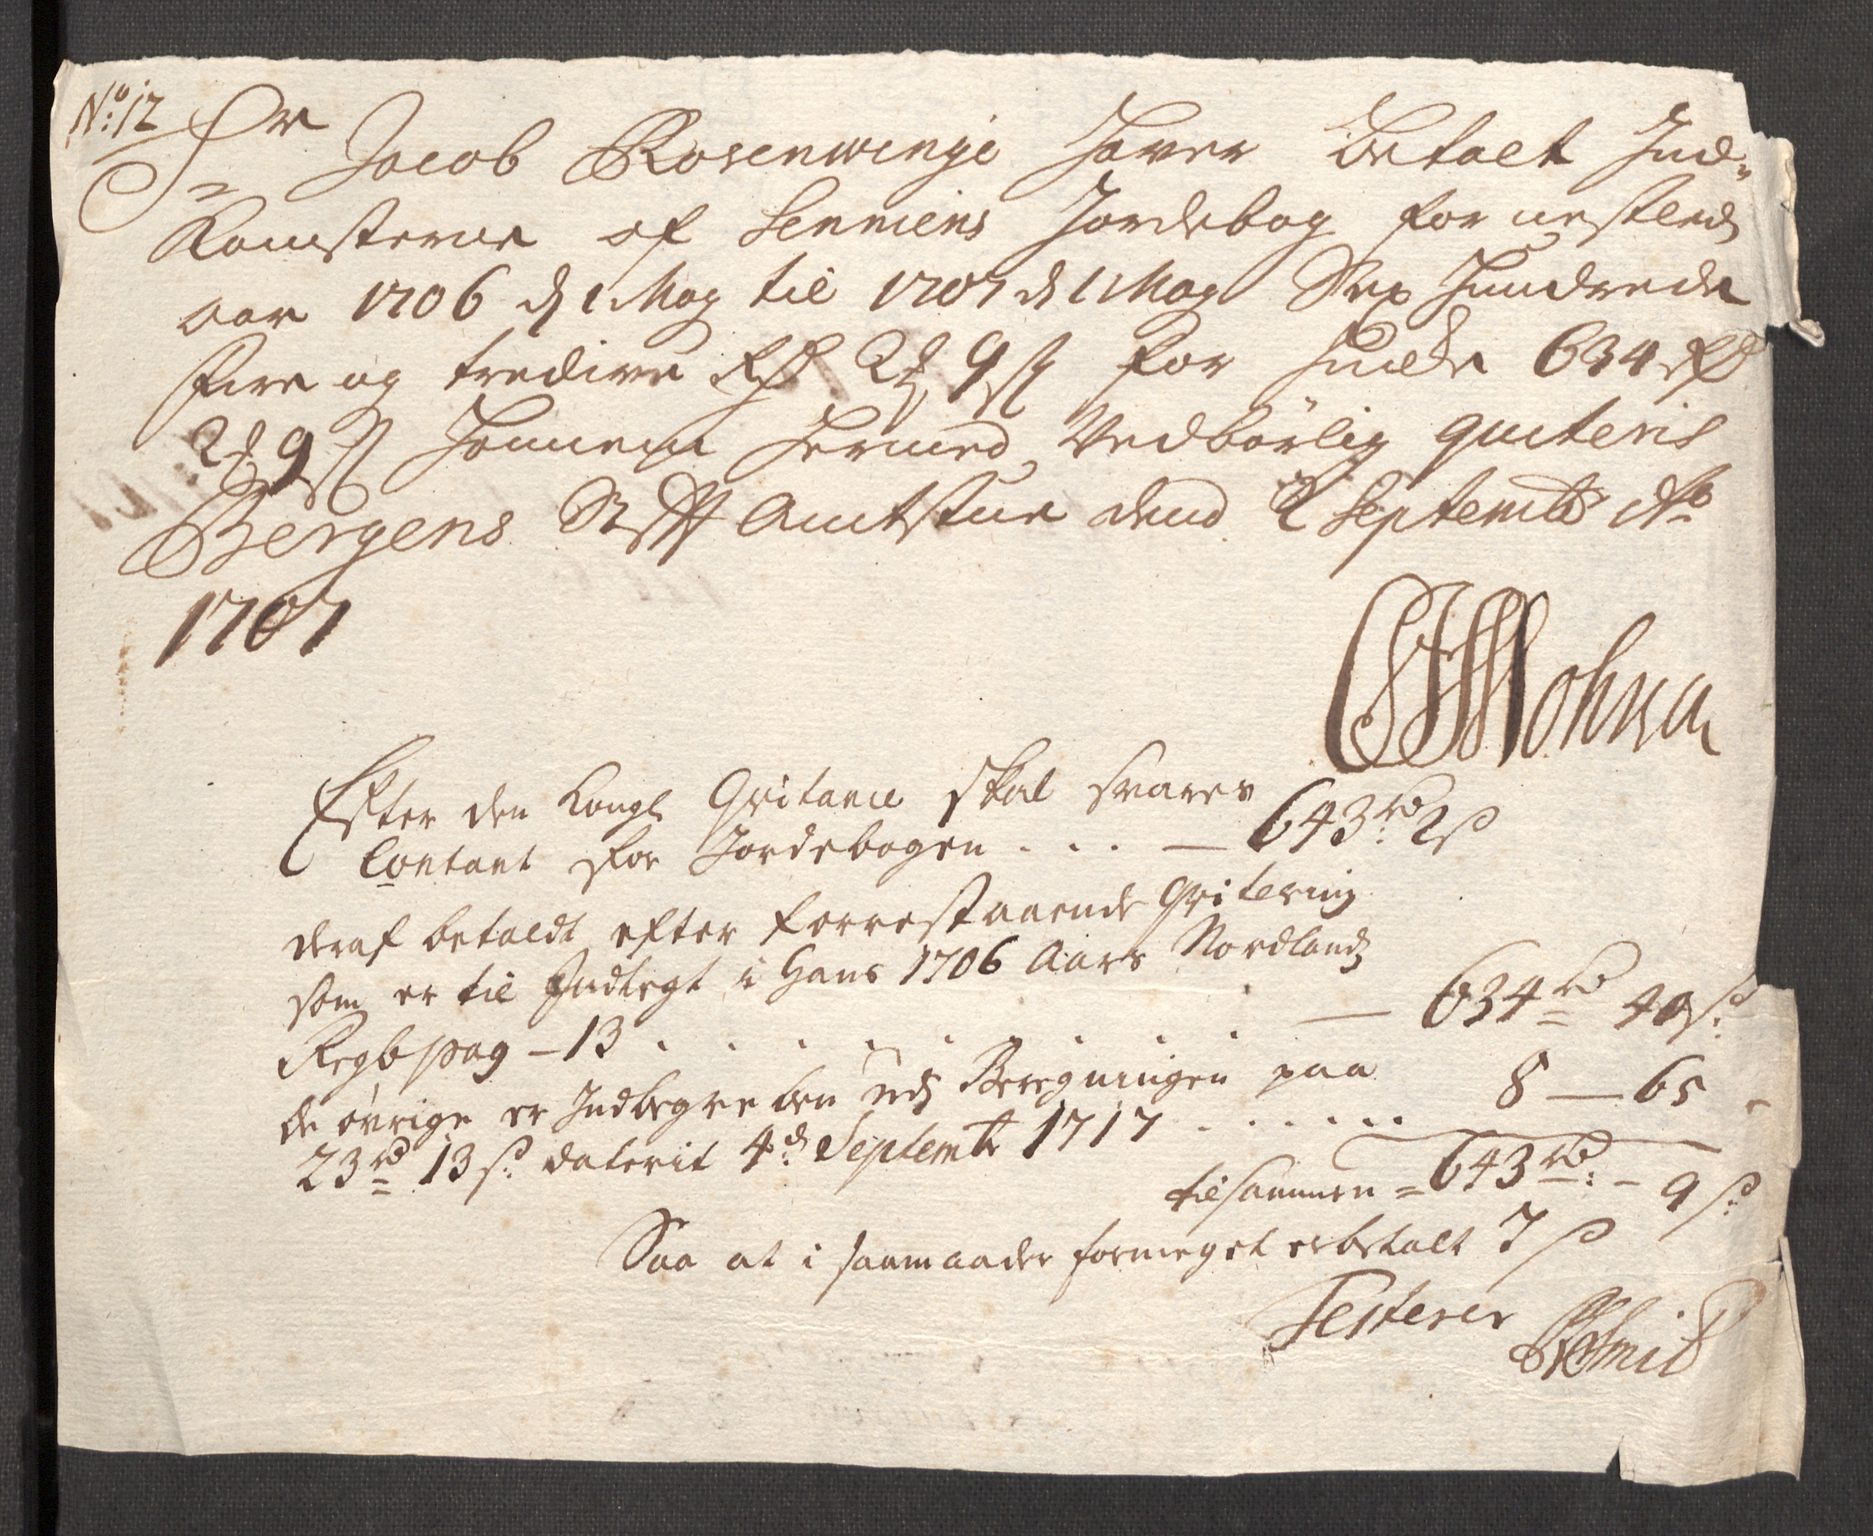 No: 12
Sr Jacob Rosenwinge Haver betalt Ind-
Komsterne af Senniens Jordebog for nestleden
aar 1706 d 1 May til 1707 d 1 May Sex Hundrede
fire og tredive Rd 2 9 s for huilde 634 Rd
2 9 s Hannem Hermed Vedbörlig quiteris
Bergens Stifft Amtstue dend 2 Septembr Ao
1707
Efter den Kongl Qvitance skal svares
Contant for Jordebogen . . . — 643 rd: 2 s
deraf betaldt efter forrestaaende Qvitering
som er til Indlegt i Hans 1706 Aars Nordlands
Regb pag - 13 . . . . . . . — 634 rd 40 s:
de øvrige er Indbegreben udj Beregningen paa
23 rd 13 s: daterit 4d: Septembr 1717 . . . . . . 8 — 65
tilsammen = 643 rd: - 9 s:
Saa at i saamaader formeget erbetalt 7 s
Testerer
Smid